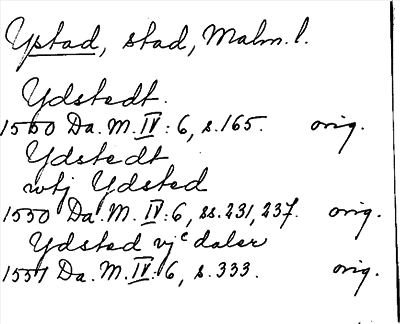 Ystad, stad, Malm. l.
Ydstedt.
1550 Da. M. IV: 6, s. 165. orig.
Ydstedt
utj Ydsted
1550 Da. M. IV: 6, ss. 231, 237. orig.
Ydsted vjc daler
1551 Da. M. IV: 6, s. 333. orig.